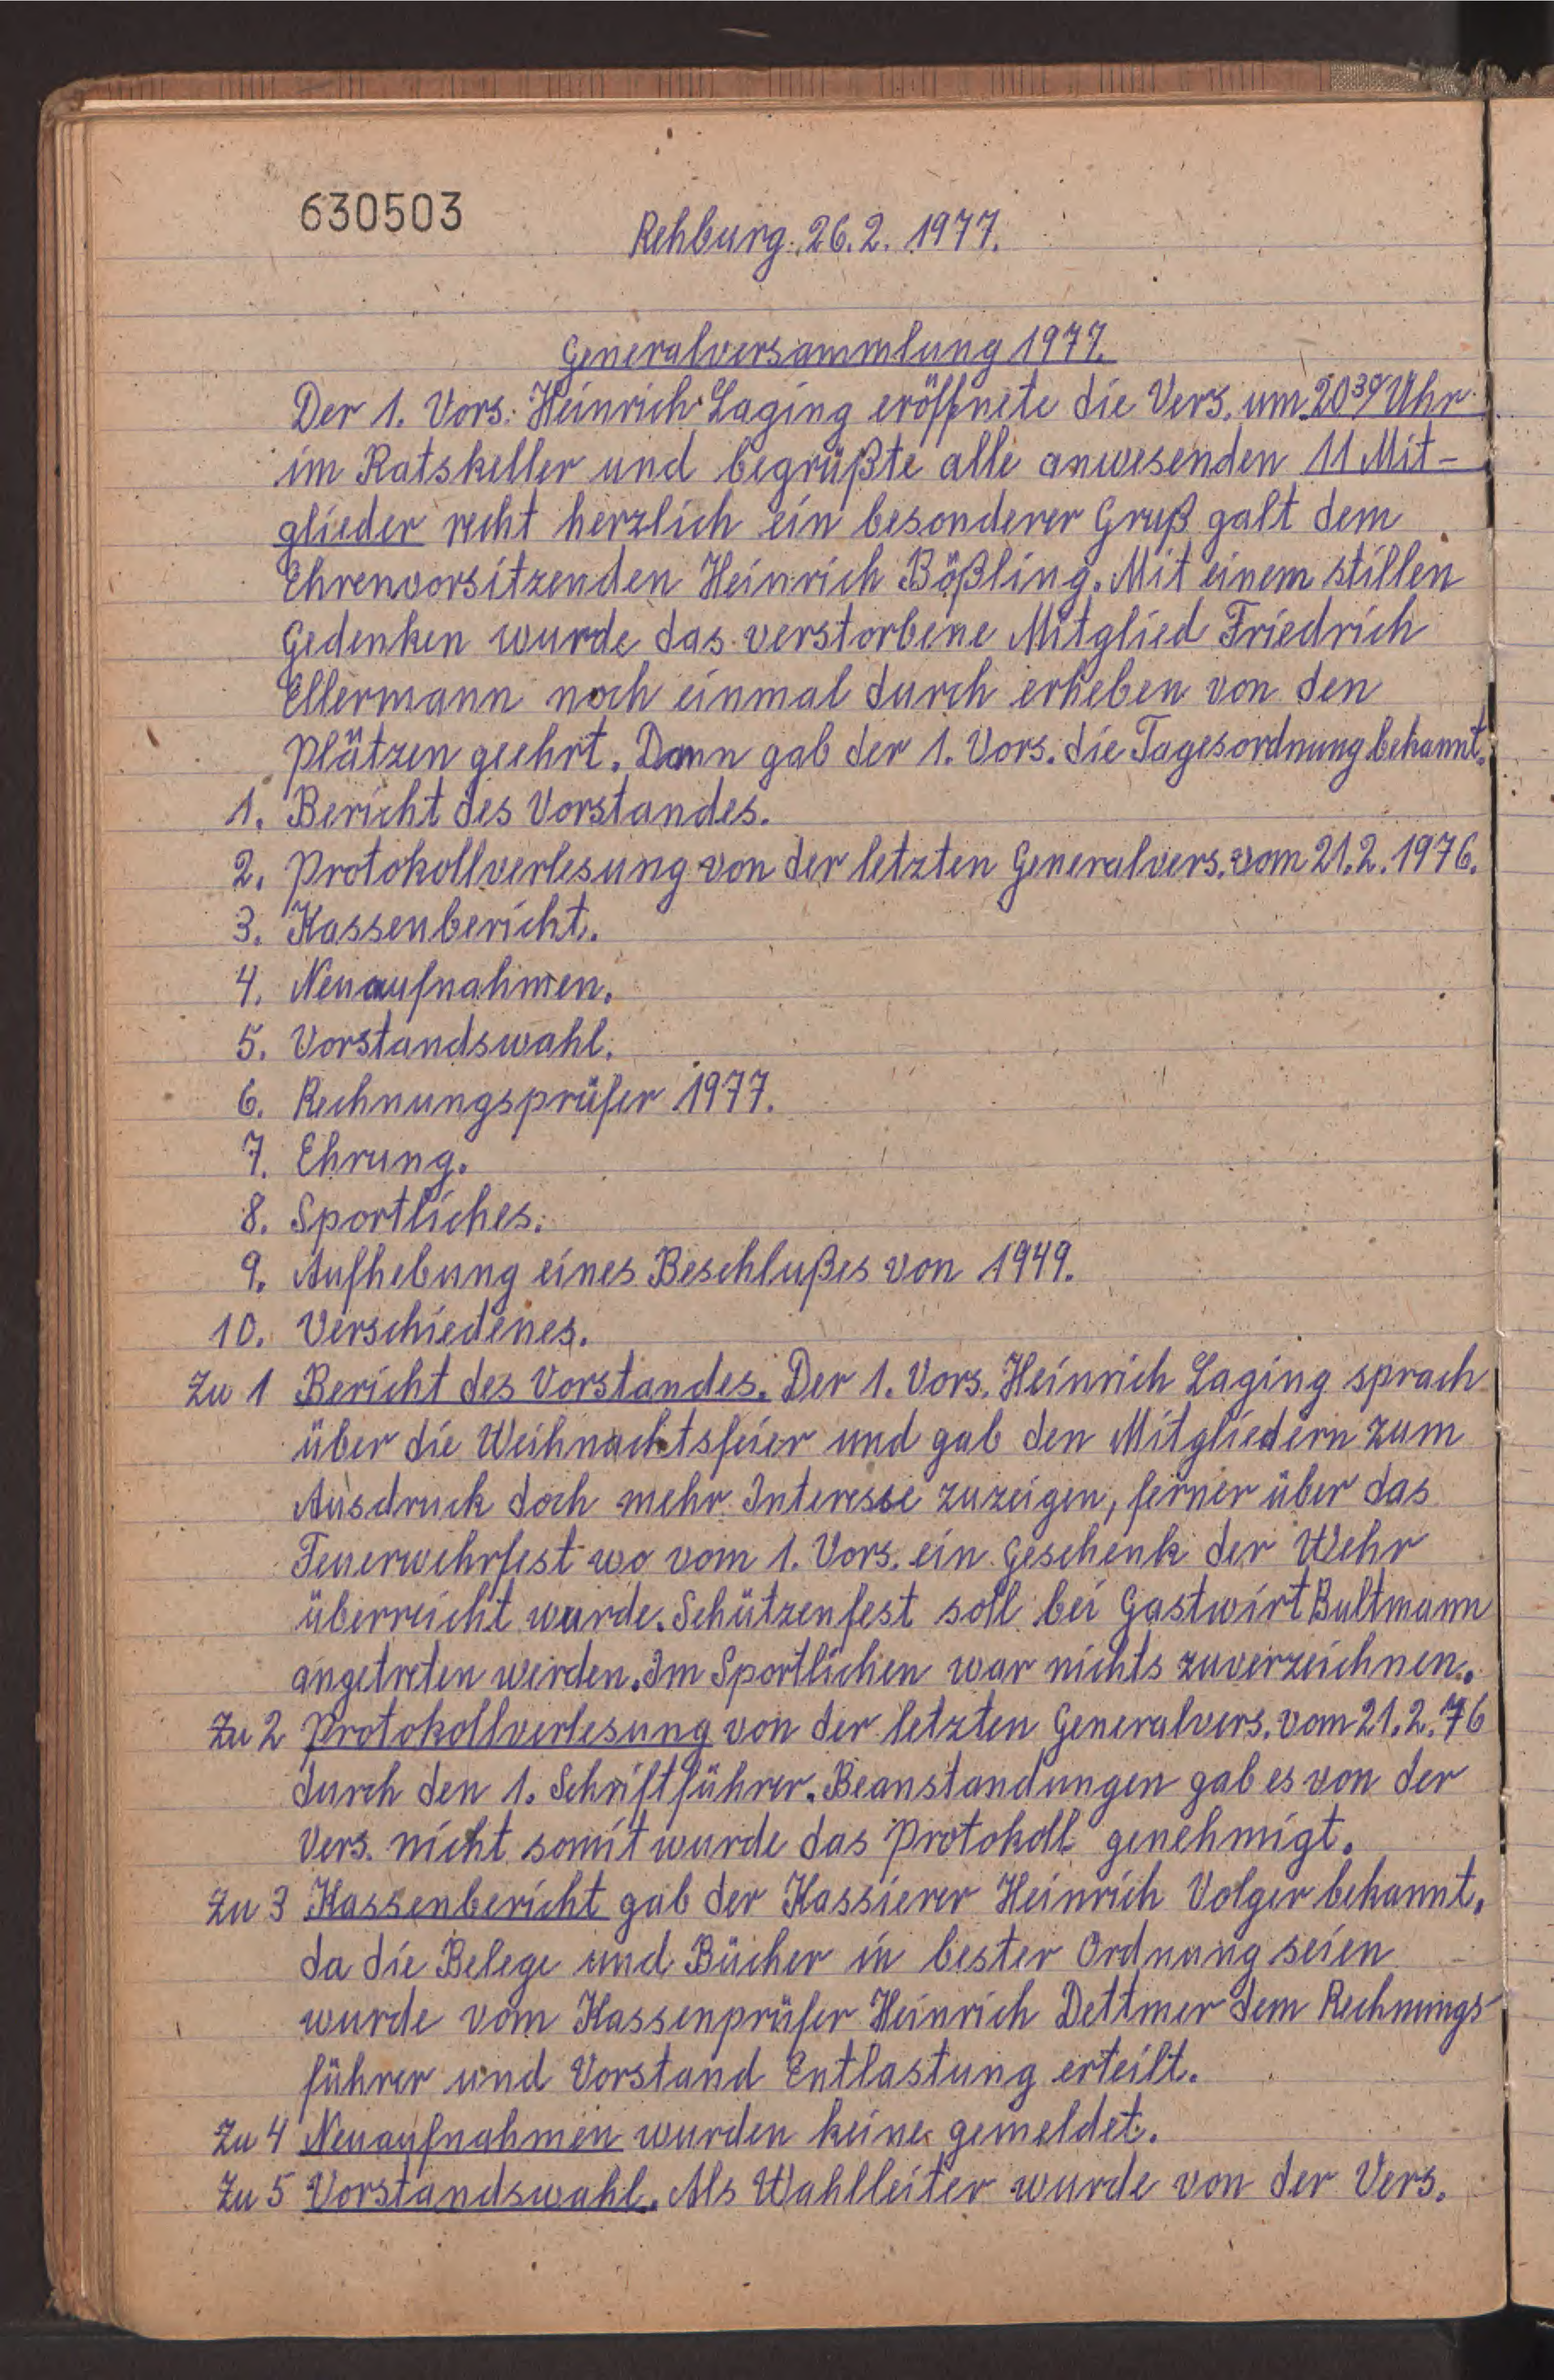 630503
Rehburg. 26. 2. 1977.
Generalversammlung 1977.
Der 1. Vors. Heinrich Laging eröffnete die Vers. um 20³⁰ Uhr
im Ratskeller und begrüßte alle anwesenden 11 Mit-
glieder recht herzlich ein besonderer Gruß galt dem
Ehrenvorsitzenden Heinrich Bößling. Mit einem stillen
Gedenken wurde das verstorbene Mitglied Friedrich
Ellermann noch einmal durch erheben von den
Plätzen geehrt. Dann gab der 1. Vors. die Tagesordnung bekannt.
1. Bericht des Vorstandes.
2. Protokollverlesung von der letzten Generalvers. vom 21.2.1976.
3. Kassenbericht.
4. Neuaufnahmen.
5. Vorstandswahl.
6. Rechnungsprüfer 1977.
7. Ehrung.
8. Sportliches.
9. Aufhebung eines Beschlußes von 1949.
10. Verschiedenes.
Zu 1 Bericht des Vorstandes. Der 1. Vors. Heinrich Laging sprach
über die Weihnachtsfeier und gab den Mitgliedern zum
Ausdruck doch mehr Interesse zuzeigen, ferner über das
Feuerwehrfest wo vom 1. Vors. ein Geschenk der Wehr
überreicht wurde. Schützenfest soll bei Gastwirt Bultmann
angetreten werden. Im Sportlichen war nichts zuverzeichnen.
Zu 2 Protokollverlesung von der letzten Generalvers. vom 21.2.76
durch den 1. Schriftführer. Beanstandungen gab es von der
Vers. nicht somit wurde das Protokoll genehmigt.
Zu 3 Kassenbericht gab der Kassierer Heinrich Volger bekannt,
da die Belege und Bücher in bester Ordnung seien
wurde vom Kassenprüfer Heinrich Dettmer dem Rechnungs-
führer und Vorstand Entlastung erteilt.
Zu 4 Neuaufnahmen wurden keine gemeldet.
Zu 5 Vorstandswahl. Als Wahlleiter wurde von der Vers.